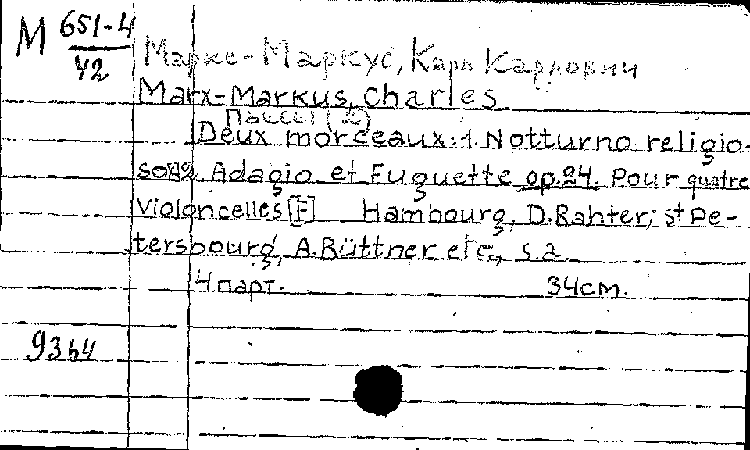 М 651-4
42
Маркс-Маркус, Карл Карлович
Marx-Markus, Charles
Пьесы (2)
Deux morceaux: 1. Notturno religio-
so. 2. Adagio et Fuguette op. 24. Pour quatre
violoncelles [F] Hambourg, D. Rahter; St Pe-
tersbourg, A. Büttner etc., s.a.
4 парт. 34см.